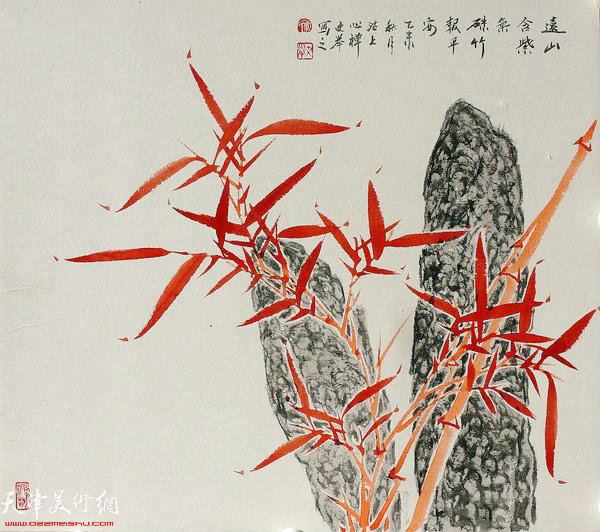 遠山
含紫
氣
硃竹
報平
安
乙未
秋月
沽上
心禪
史举
寫之
天津美術網
www.022meishu.com